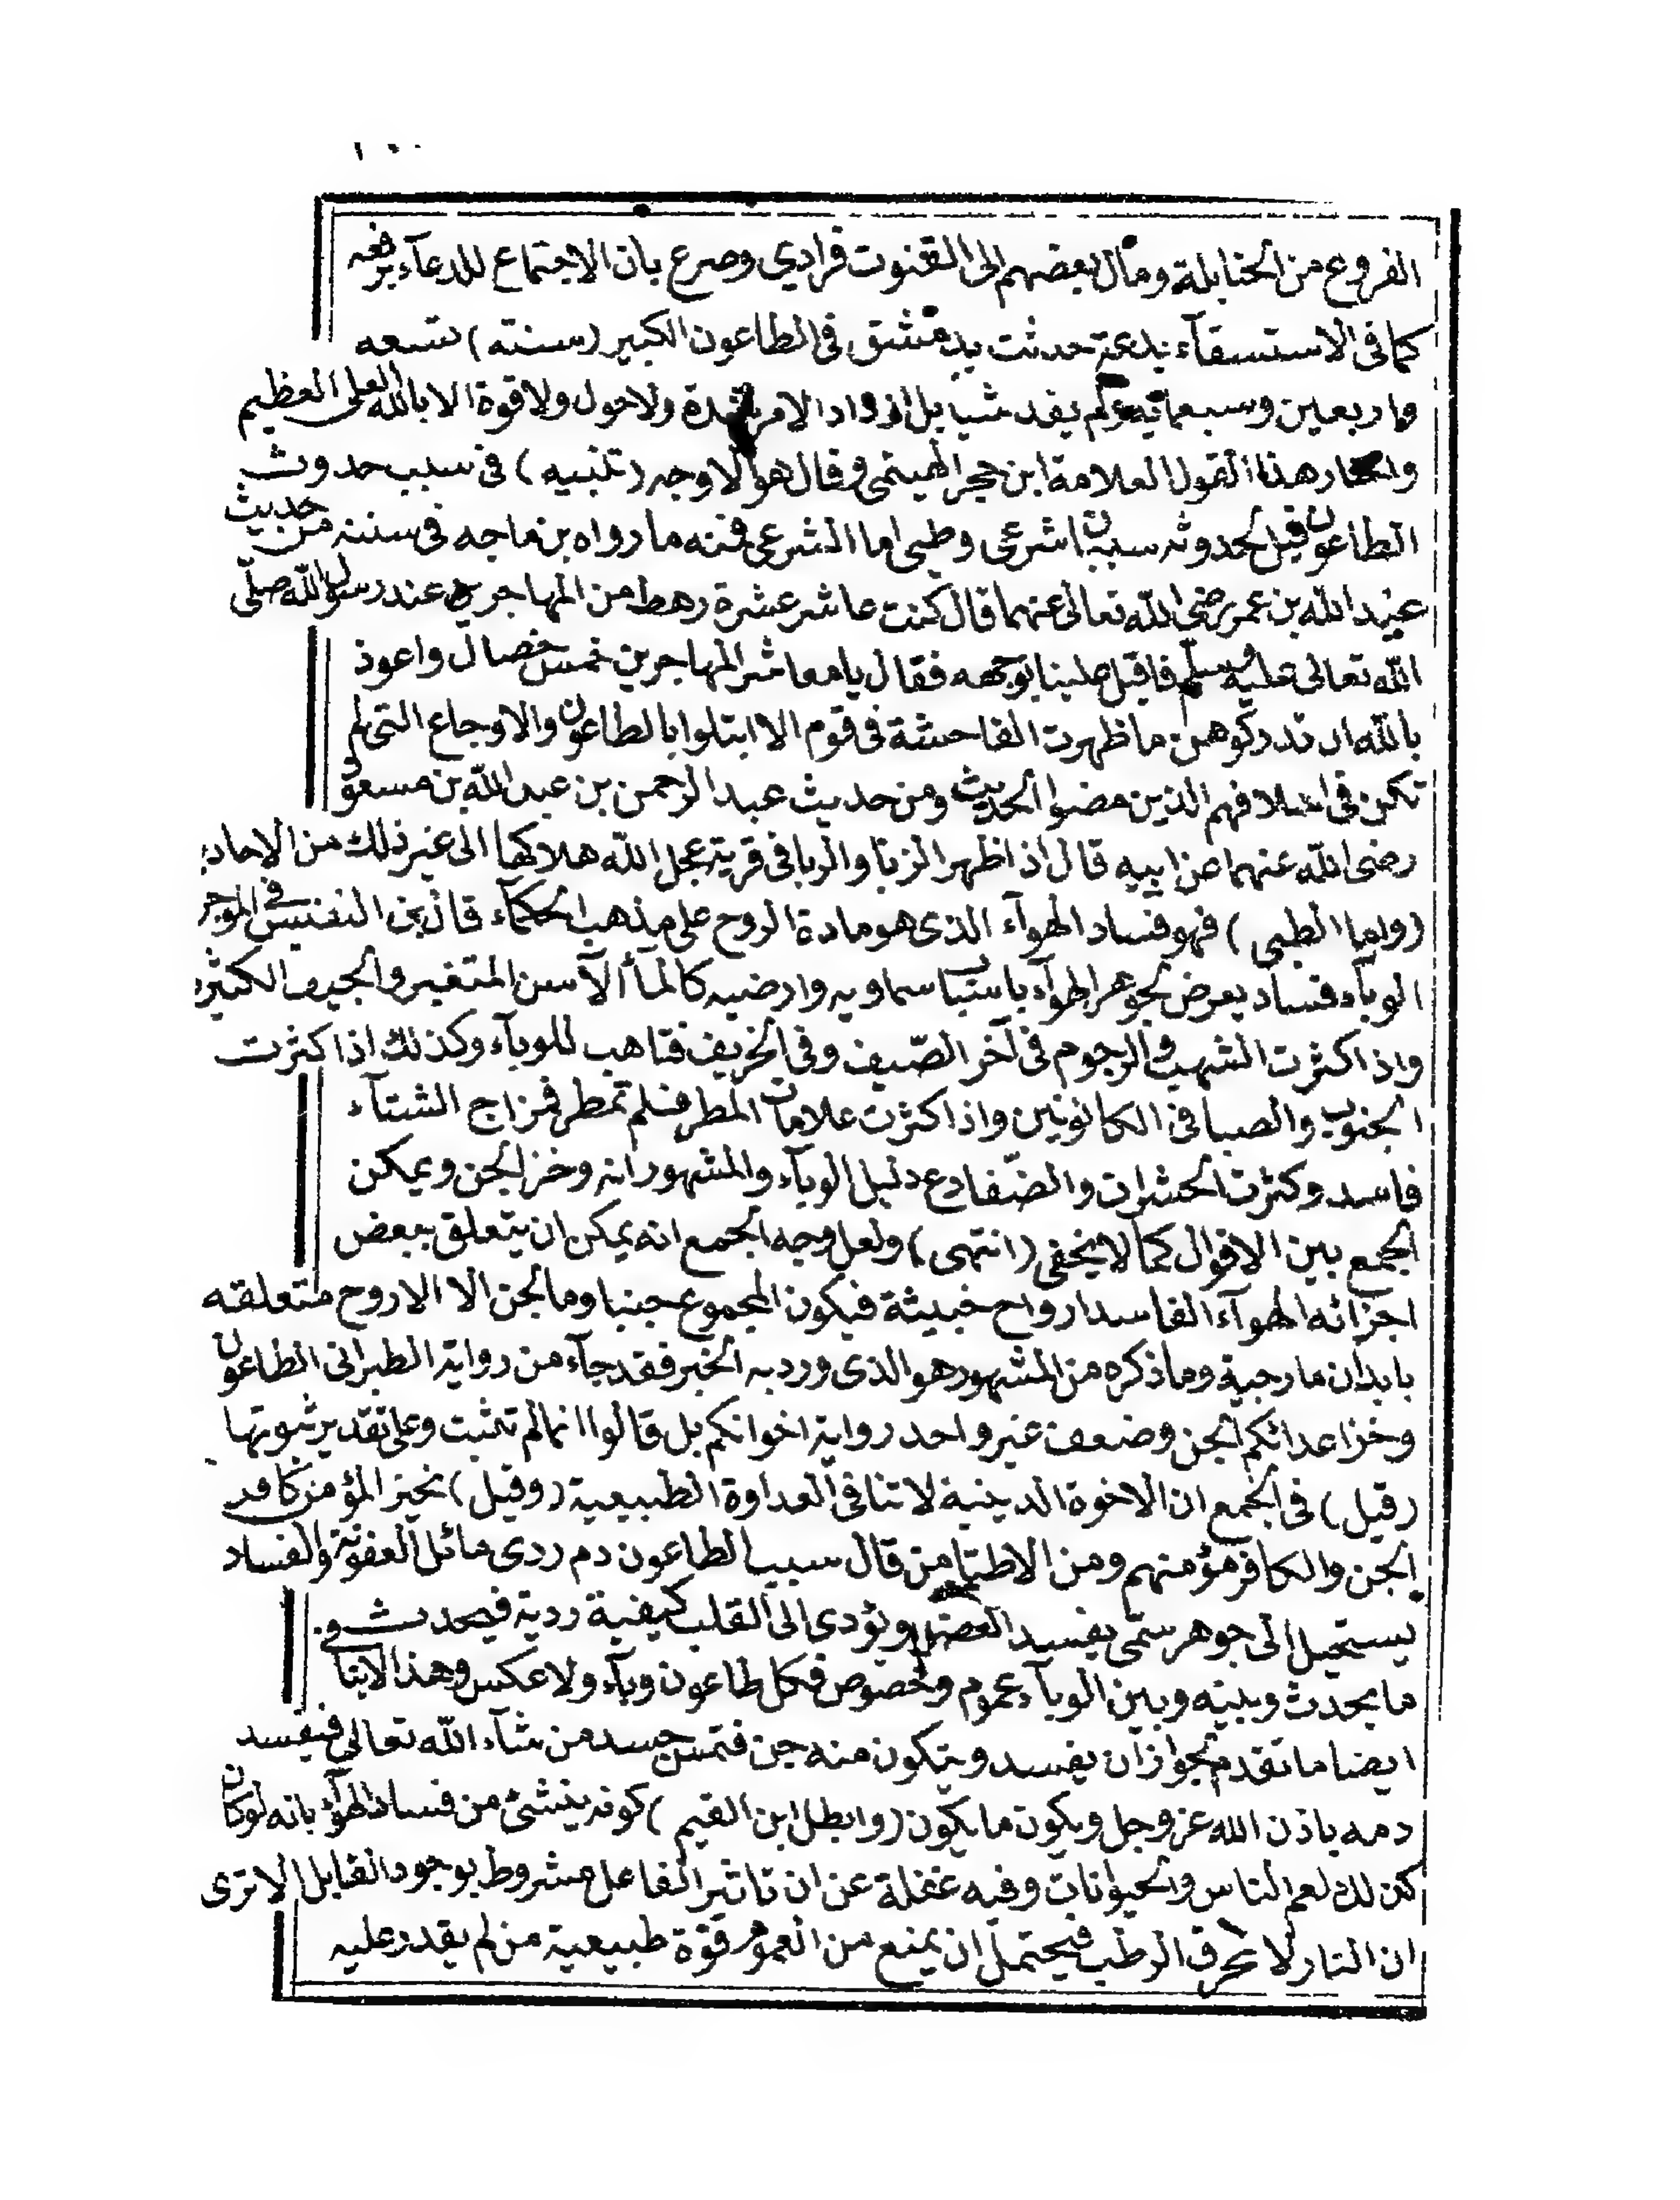 الفروع من الحنابلة ومال بعضهم الى القنوت فرادي وصرع بان الاجتماع للدعآء برفعه
كما فى الاستسقآء بدعة حدثت بدمشق فى الطاعون الكبير (سنته) تسعه
واربعين وسبعمائه ولم يفد شيا بل ازداد الامر شدة ولاحول ولا قوة الا بالله العلى العظيم
واختار هذا القول العلامة ابن حجر الهيتمى وقال هو الاوجه (تنبيه) فى سبب حدوث
الطاعون قيل لحدوثه سببان شرعى وطبى اما الشرعى فمنه ما رواه بن ماجه فى سننه من حديث
عبد الله بن عمر رضى الله تعالى عنهما قال كنت عاشر عشرة رهط من المهاجرين عند رسول الله صلّى
الله تعالى عليه وسلم فاقبل علينا بوجهه فقال يا معاشر المهاجرين خمس خصال واعوذ
بالله ان تدركوهن ما ظهرت الفاحشة فى قوم الا ابتلوا بالطاعون والاوجاع التى لم
تكن فى اسلافهم الذين مضوا الحديث ومن حديث عبد الرحمن بن عبد الله بن مسعود
رضى الله عنهما عن ابيه قال اذا ظهر الزنا والربا فى قرية عجل الله هلاكها الى غير ذلك من الاحاديـ
(واما الطبى) فهو فساد الهوآء الذى هو مادة الروح على مذهب الحكمآء قال بن النفيس فى الموجر
الوبآء فساد يعرض لجوهر الهوآء باسباب سماويه وارضيه كالمآأ الآسن المتغير والجيف الكثيره
واذا كثرت الشهب والرجوم فى آخر الصّيف وفى الخريف فتاهب للوبآء وكذلك اذا كثرت
الجنوب والصبا فى الكانونين واذا كثرت علامات المطر فلم تمطر فمزاج الشتآء
فاسد وكثرت الحشرات والضّفادع دليل الوبآء والمشهور انه وخز الجن ويمكن
الجمع بين الاقوال كما لا يخفى (انتهى) ولعل وجه الجمع انه يمكن ان يتعلق ببعض
اجزائه الهوآء الفاسد ارواح خبيثة فيكون المجموع جنيا وما الجن الا الاروح متعلقه
بابدان مارجية وما ذكره من المشهور هو الذى ورد به الخبر فقد جآء من رواية الطبرانى الطاعون
وخز اعدائكم الجن وضعف غير واحد رواية اخوانكم بل قالوا انها لم تثبت وعلى تقدير ثبوتها
(قيل) فى الجمع ان الاخوة الدينية لا تنافى العداوة الطبيعية (وقيل) نخيز المؤمن كافر
الجن والكافر مؤمنهم ومن الاطبا من قال سبب الطاعون دم ردى مائل العفونة والفساد
يستحيل الى جوهر سمّى يفسد العضو ويؤدى الى القلب كيفية ردية فيحدث
ما يحدث وبينه وبين الوبآء عموم وخصوص فكل طاعون وبآء ولا عكس وهذا لا ينا فى
ايضا ما تقدم لجواز ان يفسد ويتكون منه جن فتمس جسد من شآء الله تعالى فيفسد
دمه باذن الله عز وجل ويكون ما يكون (وابطل ابن القيم) كونه ينشئ من فساد الهوآء بانه لو كان
كذلك لعم الناس والحيوانات وفيه غفلة عن ان تاثير الفاعل مشروط بوجود القابل الا ترى
ان النار لا تحرق الرطب فيحتمل ان يمنع من العموم قوّة طبيعية من لم يقدر عليه